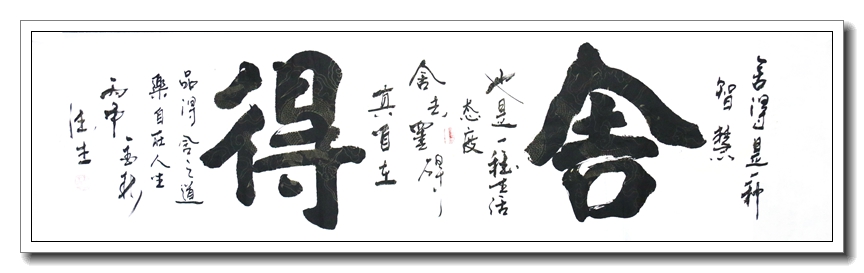 舍得是一种
智慧
舍
也是一種生活
态度
舍去罣碍
真自在
得
品得舍之道
樂自在人生
丙申 金秋